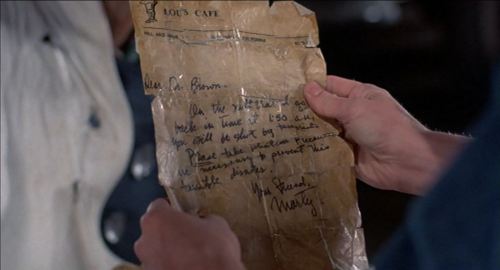 LOU'S CAFE
HILL VALLEY CALIFORNIA
Dear Dr. Brown,
On the night that I go
back in time at 1:30 A.M.
you will be shot by
Please take whatever precautions
are necessary to prevent this
terrible disaster.
Your Friend,
Marty